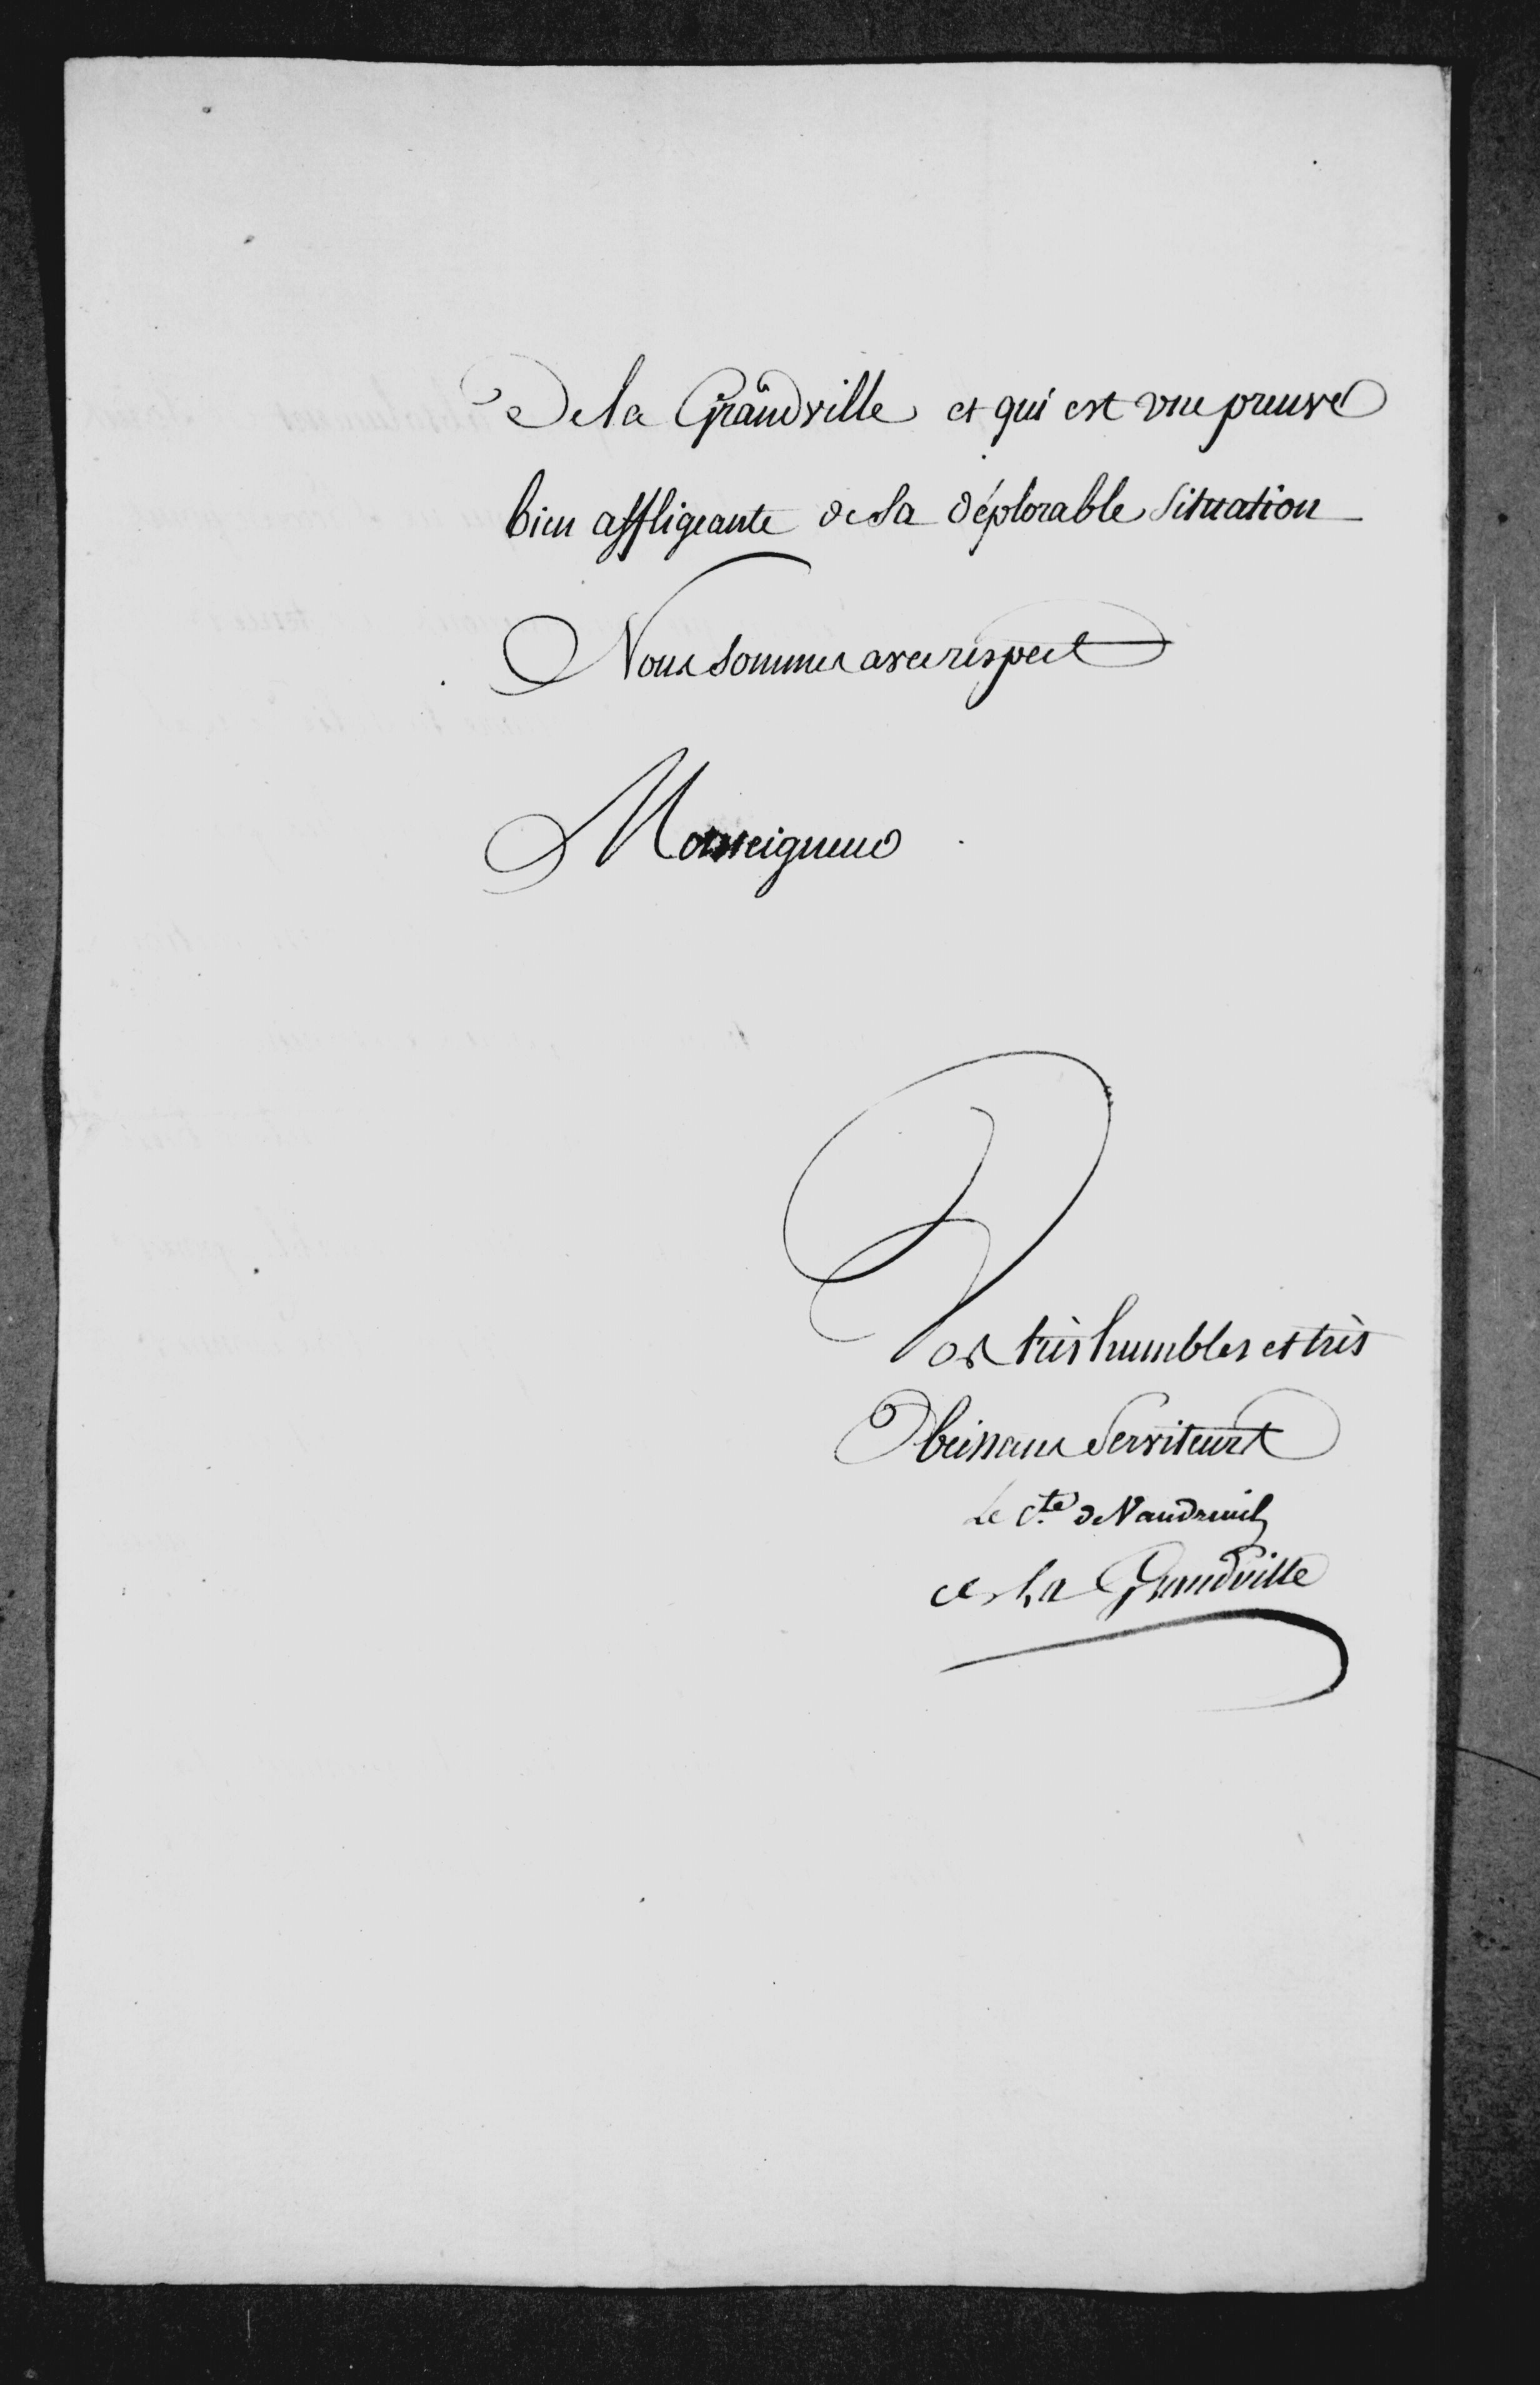 De la Grandville et qui est une preuve
bien affligeante de sa déplorable situation
Nous sommes avec respect
Monseigneur
Vos très humbles et très
Obeissans Serviteurs
Le Cte de Vaudreuil
de la Grandville